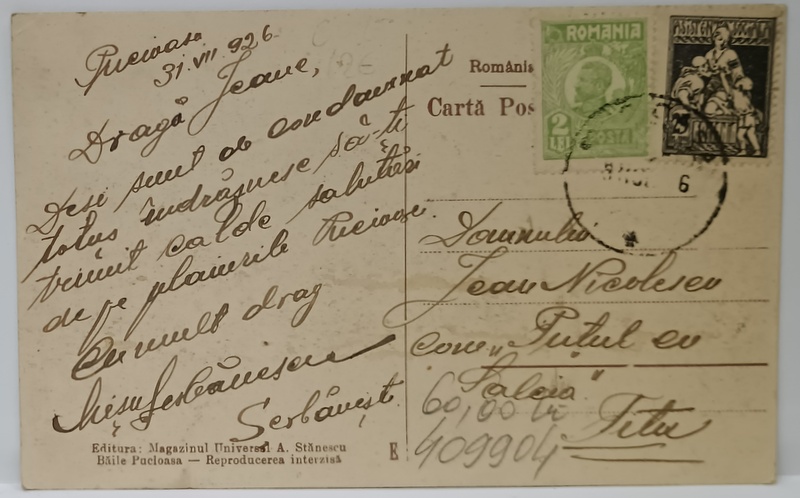 Pucioasa
31.VII.926.
Dragă Jeane,
Deși sunt de condamnat
totuș îndrăsnesc să-ți
trimit calde salutări
de pe plaiurile Pucioase.
Cu mult drag
Mișu Șerbănescu
Șerbănești
Editura: Magazinul Universal A. Stănescu
Băile Pucioasa — Reproducerea interzisă
E
Românis
Cartă Pos
ROMANIA
2
LEI
POSTA
ASISTENTA SOCIALA
25
BANI
6
Domnului
Jean Nicolescu
com „Puțul cu
Salcia"
Titu
60,00 lei
409904